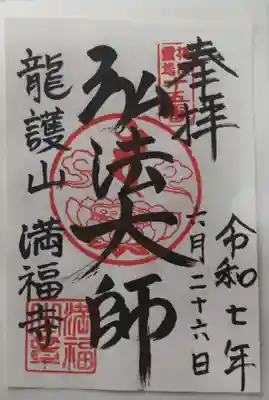 奉拝
令和七年
六月二十六日
弘法大師
龍護山 満福寺